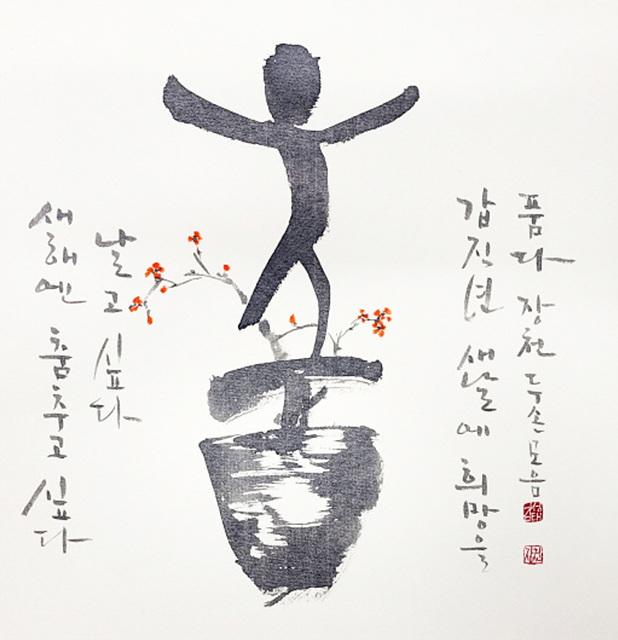 새해엔 춤추고 싶다
날고 싶다
갑진년 새날에 희망을
품다 장천 두손모음